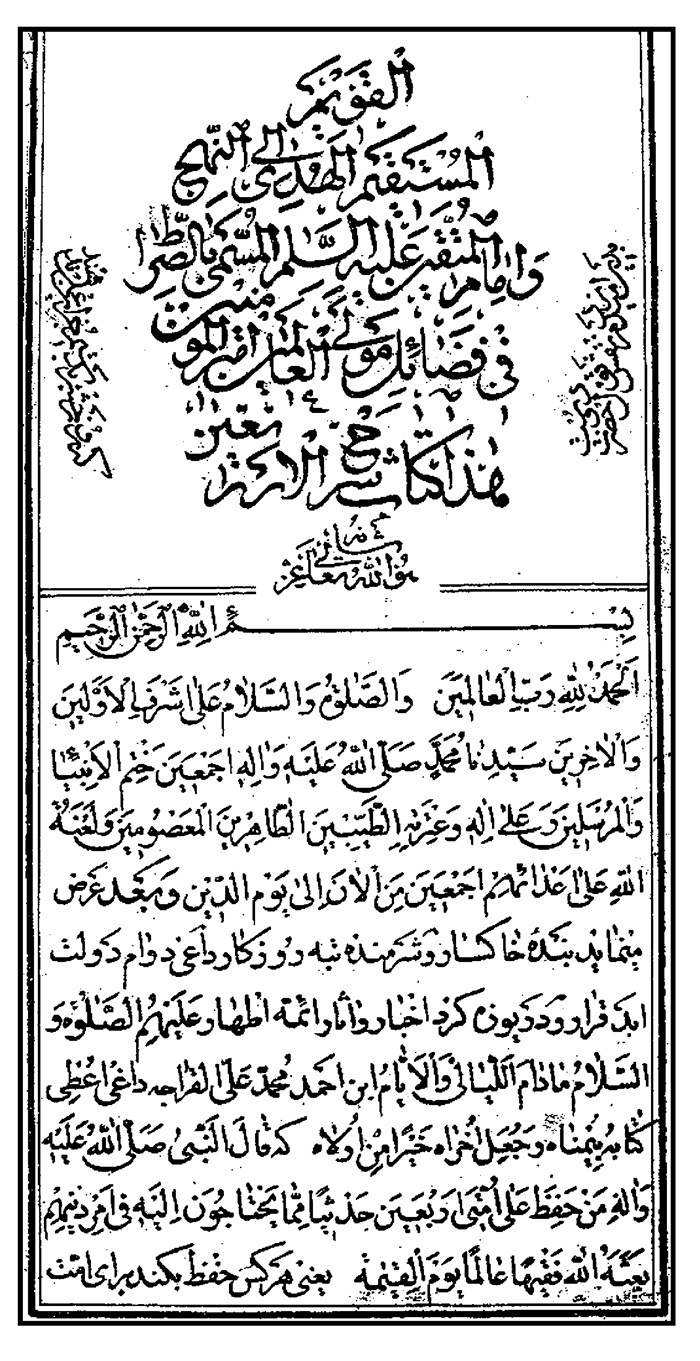 القويم
المستقيم الهدى الى النهج
وامام المتقين عليه السلام المسمى بالصراط
فى فضائل مولى العالمين امير المومنين
هذا كتاب
هو الله تعالى شانه
بسم الله الرحمن الرحيم
الحمد لله رب العالمين والصلوة والسلام على اشرف الاولين
والاخرين سيدنا محمد صلى الله عليه واله اجمعين ختم الانبيا
والمرسلين وعلى اله وعترته الطيبين الطاهرين المعصومين ولعنة
الله على اعدائهم اجمعين من الان الى يوم الدين وبعد عرض
مينمايد بنده خاكسار وشرمنده تبه روزكار داعى دوام دولت
ابد قرار ودريوزه كرد اخبار واثار ائمه اطهار عليهم الصلوة و
السلام مادام الليالى والايام ابن احمد محمد على القراجه داغى اعطى
كتابه بيمناه وجعل اخراه خيرا من اولاه كه قال النبى صلى الله عليه
واله من حفظ على امتى اربعين حديثا مما يحتاجون اليه فى امر دينهم
بعثه الله فقيها عالما يوم القيمة يعنى هر كس حفظ بكند براى امت